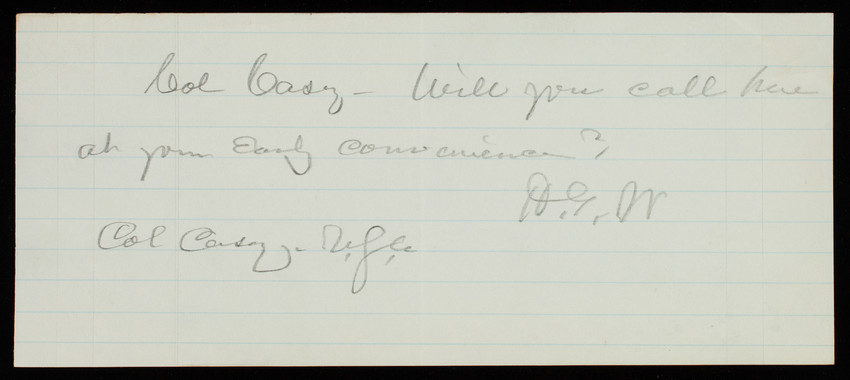 Col Casey - Will you call here
at your Early convenience?
H.G.W
Col Casey -